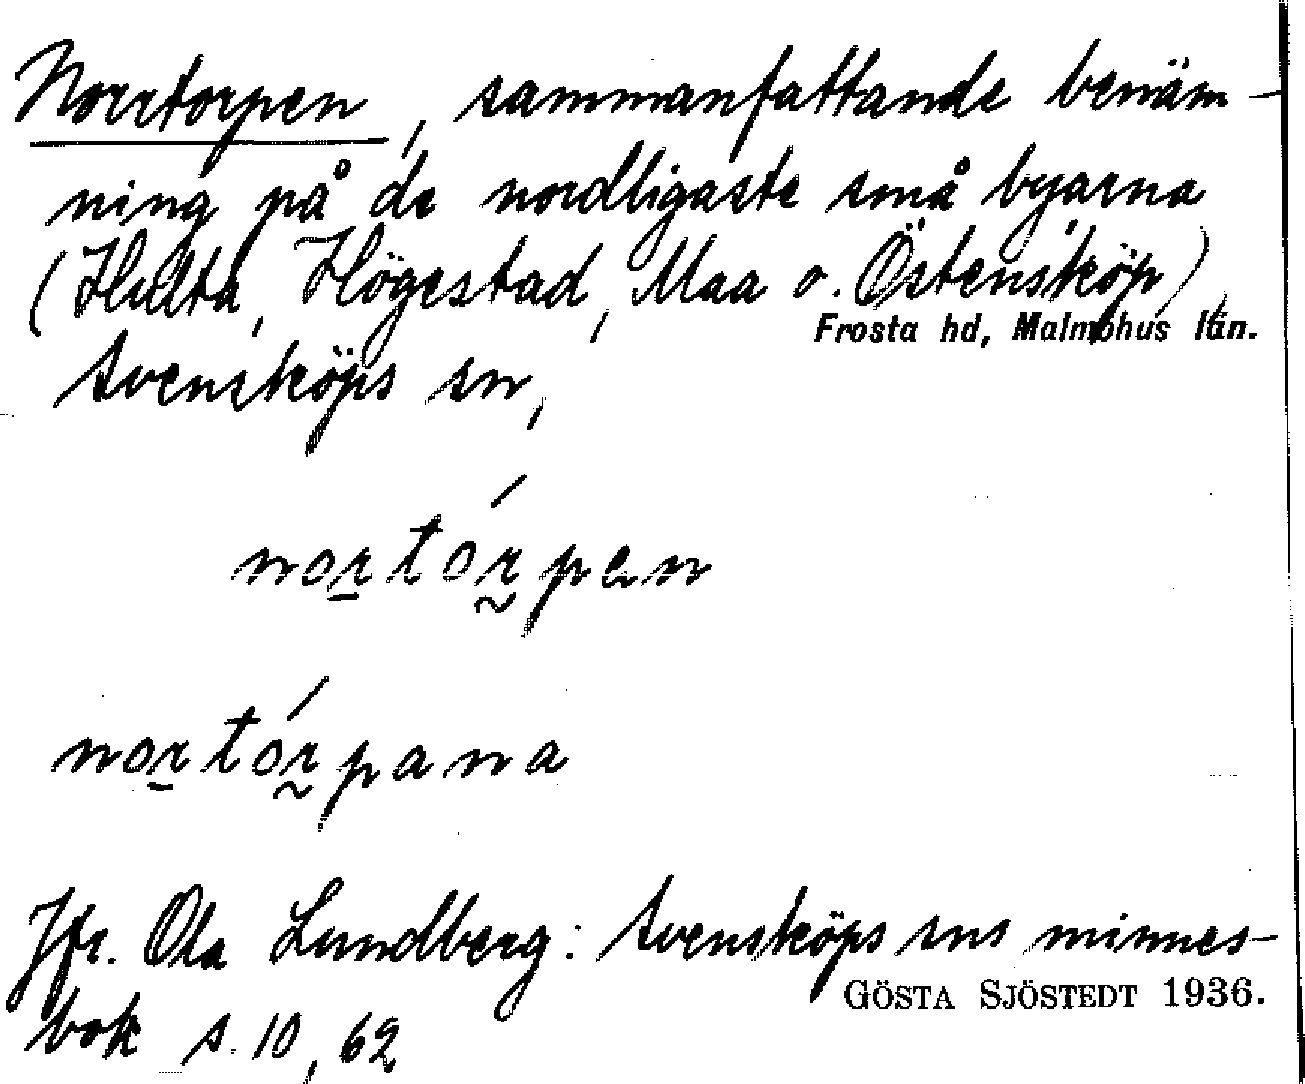 Norrtorpen, sammanfattande benäm-
ning på de nordligaste små byarna
(Hulta, Högestad, Maa o. Östensköp),
Frosta hd, Malmöhus län.
Svensköps sn,
nortórpen
nortórpana
Jfr. Ola Lundberg: Svensköps sns minnes-
GÖSTA SJÖSTEDT 1936.
bok s. 10, 62